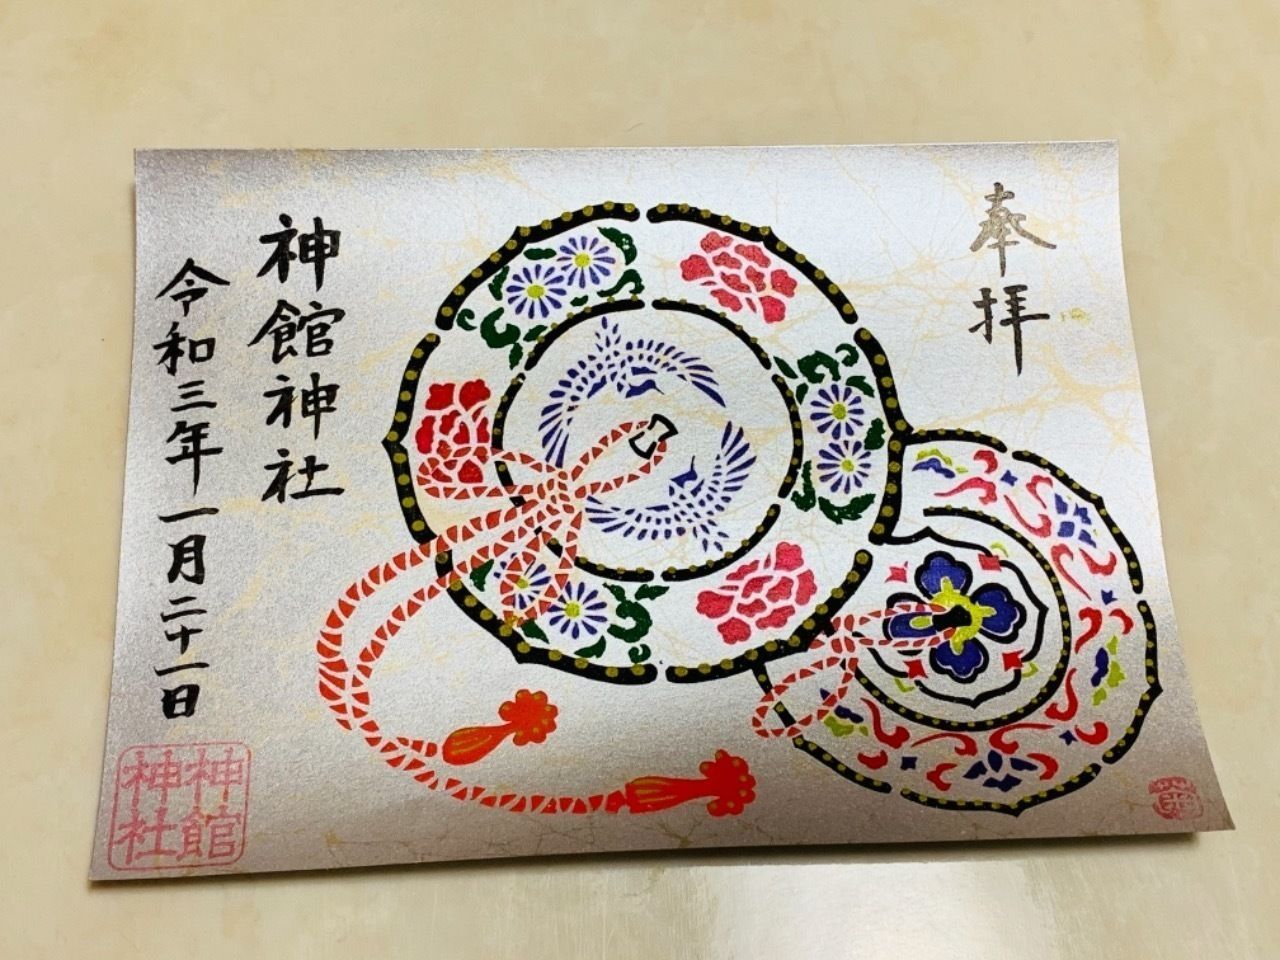 奉拝
神館神社
令和三年一月二十一日
神館
神社